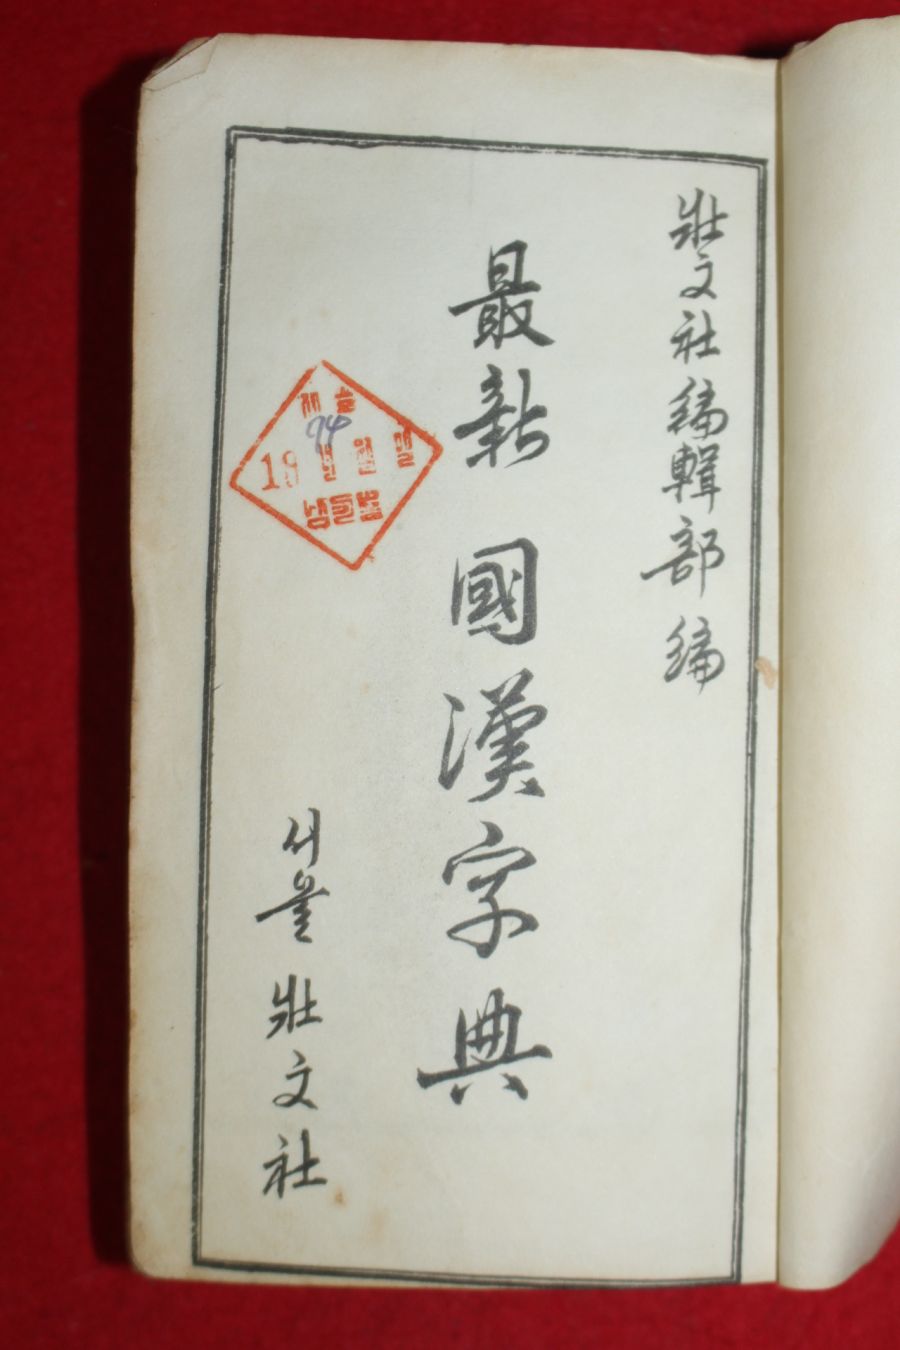 壯文社編輯部 編
最新 國漢字典
제 호
94
19 년 월 일
서울 壯文社